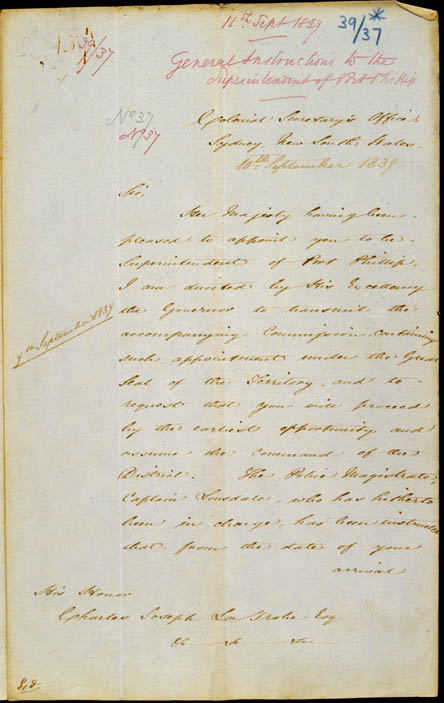 11th Sept 1839
39/37 *
1839/37
General Instructions to the
Superintendent of Port Phillip
No 37
No 37
Colonial Secretary's Office
Sydney, New South Wales.
10th September 1839
Sir,
Her Majesty having been
pleased to appoint you to be
Superintendent of Port Phillip,
I am directed by His Excellency
the Governor to transmit the
accompanying Commission, containing
such appointment under the Great
Seal of the Territory, and to
request that you will proceed
by the earliest opportunity and
assume the command of the
District. The Police Magistrate,
Captain Lonsdale, who has hitherto
been in charge, has been instructed
that from the date of your
arrival
9th September 1839
His Honor
Charles Joseph La Trobe Esq
&c &c &c